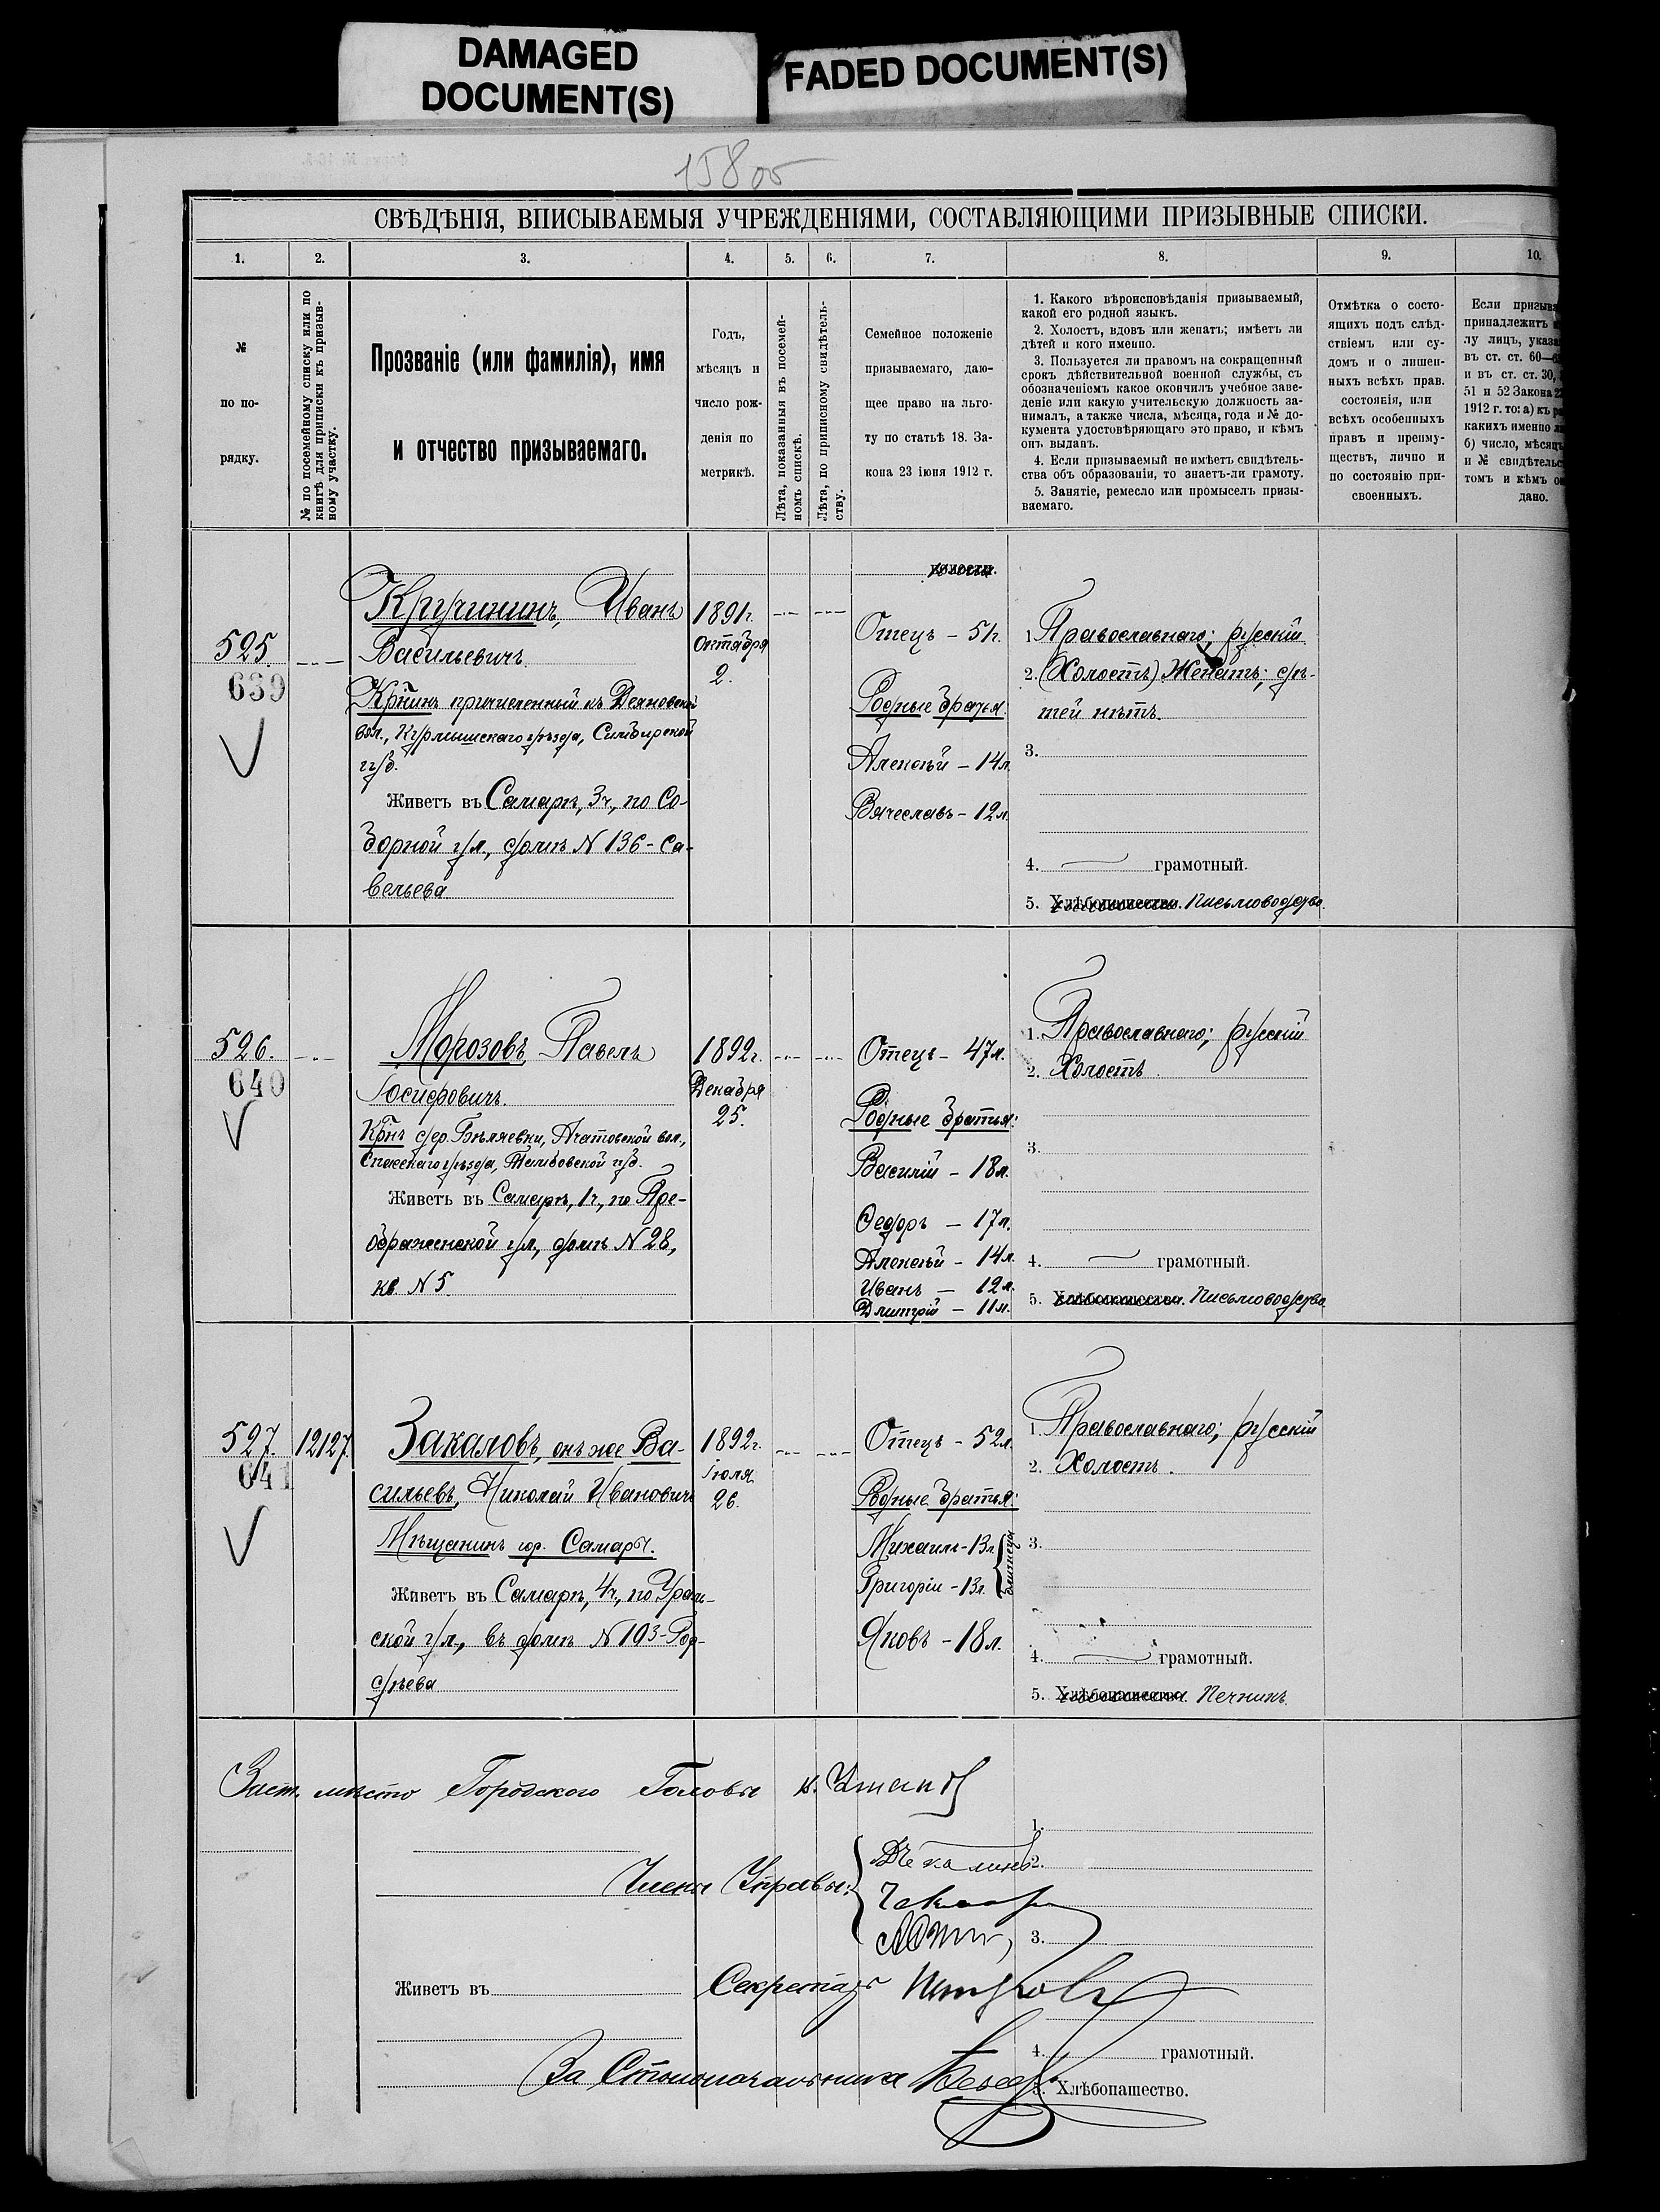 DAMAGED
DOCUMENT(S)
FADED DOCUMENT(S)
СВѢДѢНІЯ, ВПИСЫВАЕМЫЯ УЧРЕЖДЕНІЯМИ, СОСТАВЛЯЮЩИМИ ПРИЗЫВНЫЕ СПИСКИ.
1. 2. 3. 4. 5. 6. 7. 8. 9. 10.
№
по по-
рядку.
№ по посемейному списку или по
книгѣ для приписки къ призыв-
ному участку.
Прозваніе (или фамилія), имя
и отчество призываемаго.
Годъ,
мѣсяцъ и
число рож-
денія по
метрикѣ.
Лѣта, показанныя въ посемей-
номъ спискѣ.
Лѣта, по приписному свидѣтель-
ству.
Семейное положеніе
призываемаго, даю-
щее право на льго-
ту по статьѣ 18. За-
кона 23 іюня 1912 г.
1. Какого вѣроисповѣданія призываемый,
какой его родной языкъ.
2. Холостъ, вдовъ или женатъ; имѣетъ ли
дѣтей и кого именно.
3. Пользуется ли правомъ на сокращенный
срокъ дѣйствительной военной службы, съ
обозначеніемъ какое окончилъ учебное заве-
деніе или какую учительскую должность за-
нималъ, а также числа, мѣсяца, года и № до-
кумента удостовѣряющаго это право, и кѣмъ
онъ выданъ.
4. Если призываемый не имѣетъ свидѣтель-
ства объ образованіи, то знаетъ-ли грамоту.
5. Занятіе, ремесло или промыселъ призы-
ваемаго.
Отмѣтка о состо-
ящихъ подъ слѣд-
ствіемъ или су-
домъ и о лишен-
ныхъ всѣхъ прав.
состоянія, или
всѣхъ особенныхъ
правъ и преиму-
ществъ, лично и
по состоянію при-
своенныхъ.
Если призыв
принадлежитъ
лу лицъ, указа
въ ст. ст. 60—
и въ ст. ст. 30,
51 и 52 Закона 2
1912 г. то: а) къ
какихъ именно
б) число, мѣсяцъ
и № свидѣтельс
томъ и кѣмъ
дано.
525.
639
Кручининъ, Иванъ
Васильевичъ.
Кр̃нинъ причисленный къ Деяновской
вол., Курмышскаго уѣзда, Симбирской
губ.
Живетъ въ Самарѣ, 3ч., по Со-
борной ул., домъ N 136 - Са-
вельева
1891г.
Октября
2.
волости.
Отецъ - 51г.
Родные братья:
Алексѣй - 14л.
Вячеславъ - 12л.
1. Православнаго; русскій
2. (Холостъ) Женатъ; дѣ-
тей нѣтъ.
3.
4. грамотный.
5. Хлѣбопашество. Письмоводство.
526.
640
Морозовъ, Павелъ
Іосифовичъ.
Кр̃нъ дер. Бѣляевки, Ачатовской вол.,
Спасскаго уѣзда, Тамбовской губ.
Живетъ въ Самарѣ, 1ч., по Пре-
ображенской ул., домъ N 28,
кв. N 5.
1892г.
Декабря
25.
Отецъ - 47л.
Родные братья:
Василій - 18л.
Федоръ - 17л.
Алексѣй - 14л.
Иванъ - 12л.
Дмитрій - 11л.
1. Православнаго; русскій
2. Холостъ.
3.
4. грамотный.
5. Хлѣбопашество. Письмоводство.
527.
641
12127.
Закаловъ, онъ же Ва-
сильевъ, Николай Ивановичъ
Мѣщанинъ гор. Самары.
Живетъ въ Самарѣ, 4ч., по Ураль-
ской ул., въ домѣ N 193 - Гор-
дѣева
1892г.
Іюля
26.
Отецъ - 52л.
Родные братья:
Михаилъ - 13л.
Григорій - 13л.
близнецы
Яковъ - 18л.
1. Православнаго; русскій
2. Холостъ.
3.
4. грамотный.
5. Хлѣбопашество. Печникъ.
Заст. мѣсто Городского Головы
Члены Управы:
1.
2.
3.
Живетъ въ
Секретарь
4. грамотный.
За Столоначальника
5. Хлѣбопашество.